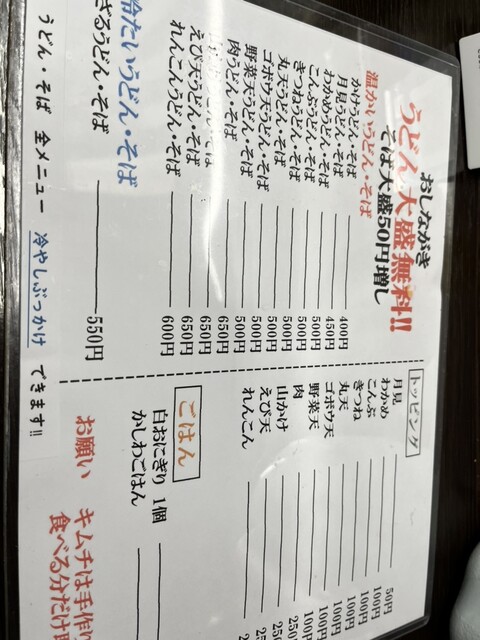 おしながき
うどん大盛無料!!
そば大盛50円増し
温かいうどん・そば
かけうどん・そば 400円
月見うどん・そば 450円
わかめうどん・そば 500円
こんぶうどん・そば 500円
きつねうどん・そば 500円
丸天うどん・そば 500円
ゴボウ天うどん・そば 500円
野菜天うどん・そば 500円
肉うどん・そば 650円
うどん・そば 650円
えび天うどん・そば 650円
れんこんうどん・そば 600円
冷たいうどん・そば
ざるうどん・そば 550円
うどん・そば 全メニュー 冷やしぶっかけ できます!!
トッピング
月見 50円
わかめ 100円
こんぶ 100円
きつね 100円
丸天 100円
ゴボウ天 100円
野菜天 100円
肉 250
山かけ 25
えび天 2
れんこん 2
ごはん
白おにぎり 1個
かしわごはん
お願い キムチは手作り
食べる分だけ